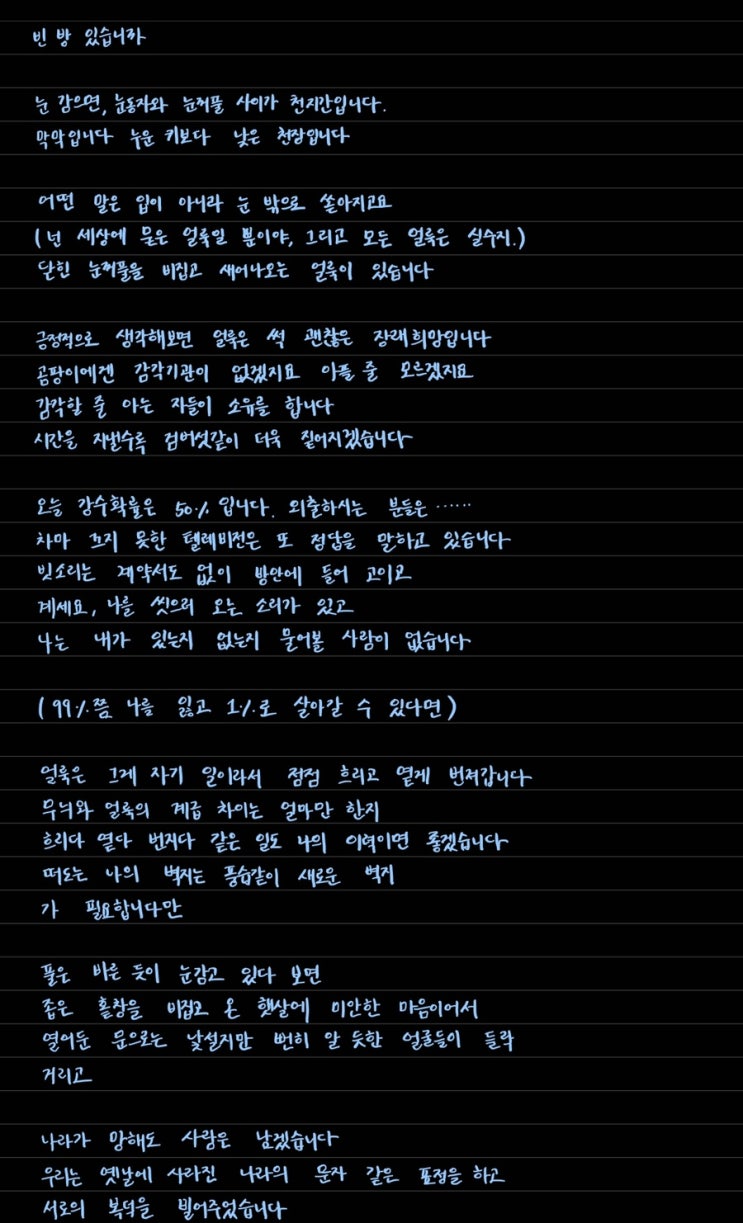 빈 방 있습니까
눈 감으면, 눈동자와 눈꺼풀 사이가 천지간입니다.
막막입니다 누운 키보다 낮은 천장입니다
어떤 말은 입이 아니라 눈 밖으로 쏟아지고요
(넌 세상에 묻은 얼룩일 뿐이야, 그리고 모든 얼룩은 실수지.)
닫힌 눈꺼풀을 비집고 새어나오는 얼룩이 있습니다
긍정적으로 생각해보면 얼룩은 썩 괜찮은 장래희망입니다
곰팡이에겐 감각기관이 없겠지요 아플 줄 모르겠지요
감각할 줄 아는 자들이 소유를 합니다
시간을 지낼수록 검버섯같이 더욱 짙어지겠습니다
오늘 강수확률은 50% 입니다. 외출하시는 분들은 ······
차마 끄지 못한 텔레비전은 또 정답을 말하고 있습니다
빗소리는 계약서도 없이 방안에 들어 고이고
계세요, 나를 씻으러 오는 소리가 있고
나는 내가 있는지 없는지 물어볼 사람이 없습니다
(99%쯤 나를 잃고 1%로 살아갈 수 있다면)
얼룩은 그게 자기 일이라서 점점 흐리고 옅게 번져갑니다
무늬와 얼룩의 계급 차이는 얼마만 한지
흐리다 옅다 번지다 같은 일도 나의 이력이면 좋겠습니다
떠도는 나의 벽지는 풍습같이 새로운 벽지
가 필요합니다만
풀은 바른 듯이 눈감고 있다 보면
좁은 홑창을 비집고 온 햇살에 미안한 마음이어서
열어둔 문으로는 낯설지만 뻔히 알 듯한 얼굴들이 들락
거리고
나라가 망해도 사람은 남겠습니다
우리는 옛날에 사라진 나라의 문자 같은 표정을 하고
서로의 복덕을 빌어주었습니다